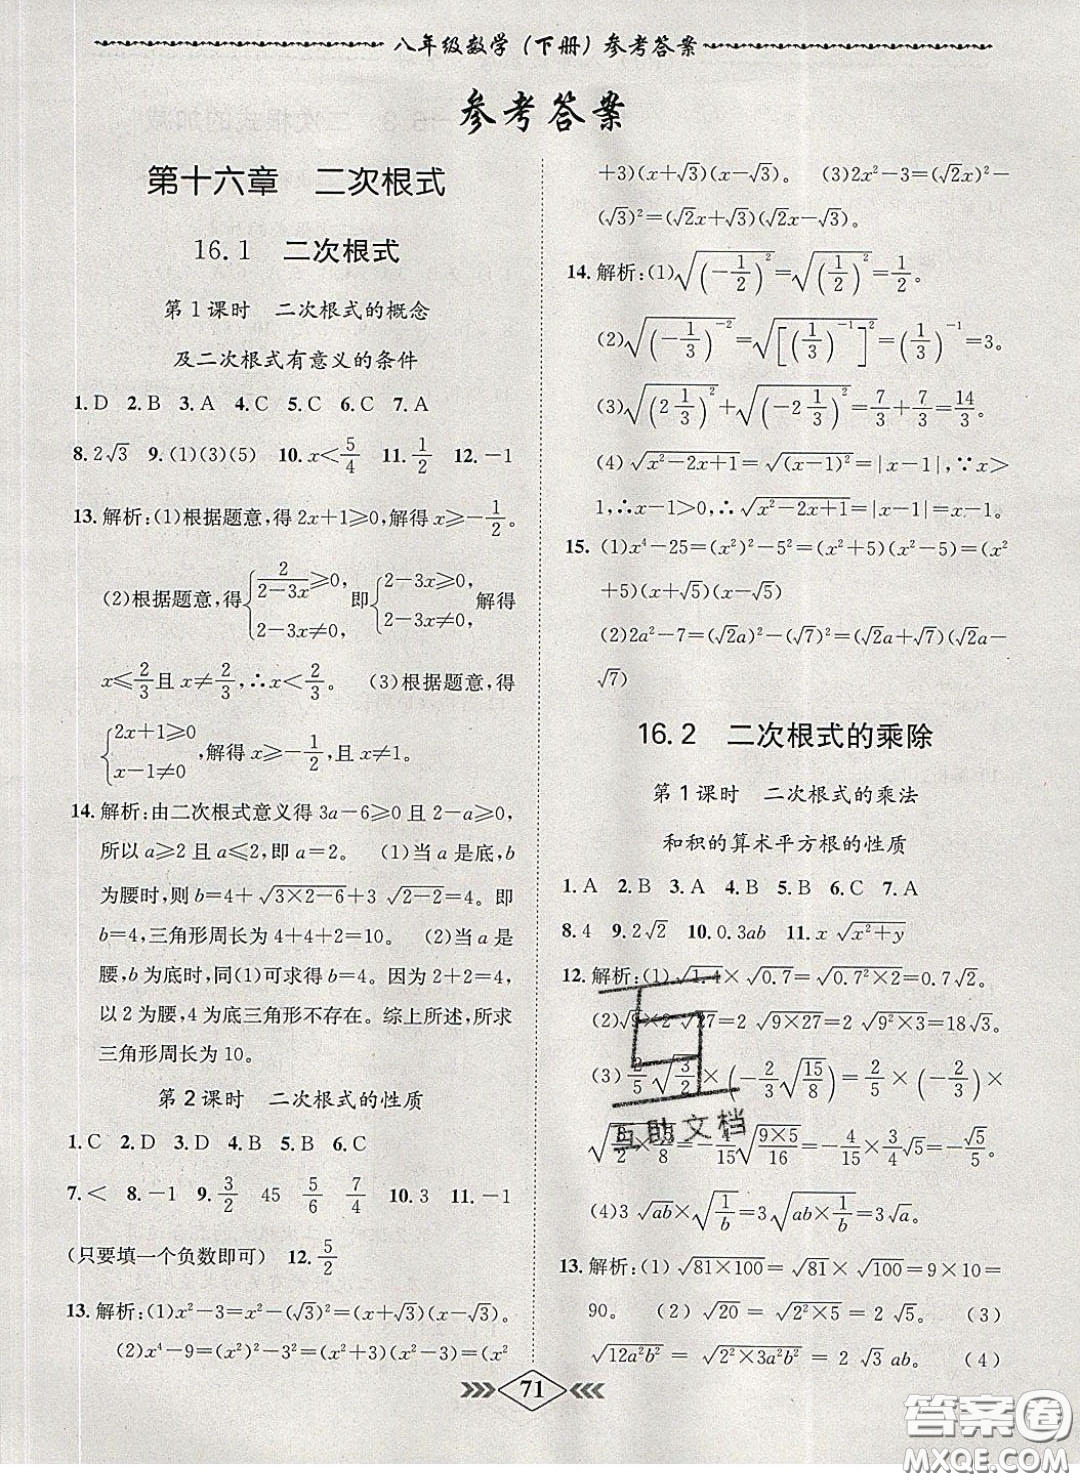 八年级数学(下册)参考答案
参考答案
第十六章 二次根式
16.1 二次根式
第1课时 二次根式的概念
及二次根式有意义的条件
1.D 2.B 3.A 4.C 5.C 6.C 7.A
8.2√3 9.(1)(3)(5) 10.x<5/4 11.1/2 12.-1
13.解析:(1)根据题意,得2x+1≥0,解得x≥-1/2。
(2)根据题意,得{2/(2-3x)≥0, 2-3x≠0 即{2-3x≥0, 2-3x≠0, 解得
x≤2/3且x≠2/3,∴x<2/3。 (3)根据题意,得
{2x+1≥0, x-1≠0 ,解得x≥-1/2,且x≠1。
14.解析:由二次根式意义得3a-6≥0且2-a≥0,
所以a≥2且a≤2,即a=2。 (1)当a是底,b
为腰时,则b=4+√(3×2-6)+3√(2-2)=4。即
b=4,三角形周长为4+4+2=10。 (2)当a是
腰,b为底时,同(1)可求得b=4。因为2+2=4,
以2为腰,4为底三角形不存在。综上所述,所求
三角形周长为10。
第2课时 二次根式的性质
1.C 2.D 3.D 4.B 5.B 6.C
7.< 8.-1 9.3/2 45 5/6 7/4 10.3 11.-1
(只要填一个负数即可) 12.5/2
13.解析:(1)x²-3=x²-(√3)²=(x+√3)(x-√3)。
(2)x⁴-9=(x²)²-3²=(x²+3)(x²-3)=(x²
+3)(x+√3)(x-√3)。 (3)2x²-3=(√2x)²-
(√3)²=(√2x+√3)(√2x-√3)。
14.解析:(1)√((-1/2)²)=√((1/2)²)=1/2。
(2)√((-1/3)⁻²)=√([(1/3)⁻¹]²)=(1/3)⁻¹=3。
(3)√((2 1/3)²)+√((-2 1/3)²)=7/3+7/3=14/3。
(4)√(x²-2x+1)=√((x-1)²)=|x-1|,∵x>
1,∴x-1>0,∴√(x²-2x+1)=|x-1|=x-1。
15.(1)x⁴-25=(x²)²-5²=(x²+5)(x²-5)=(x²
+5)(x+√5)(x-√5)
(2)2a²-7=(√2a)²-(√7)²=(√2a+√7)(√2a-
√7)
16.2 二次根式的乘除
第1课时 二次根式的乘法
和积的算术平方根的性质
1.A 2.B 3.A 4.B 5.B 6.C 7.A
8.4 9.2√2 10.0.3ab 11.x√(x²+y)
12.解析:(1)√1.4×√0.7=√(0.7²×2)=0.7√2。
(2)√9×2√27=2√(9×27)=2√(9²×3)=18√3。
(3)2/5√(3/2)×(-2/3√(15/8))=2/5×(-2/3)×
√(3/2×15/8)=-4/15√(9×5/16)=-4/15×3/4√5=-√5/5。
(4)3√ab×√(1/b)=3√(ab×1/b)=3√a。
13.解析:(1)√(81×100)=√81×√100=9×10=
90。 (2)√20=√(2²×5)=2√5。 (3)
√(12a²b²)=√(2²×3a²b²)=2√3ab。 (4)
71
互助文档
答案圈
MXQE.COM